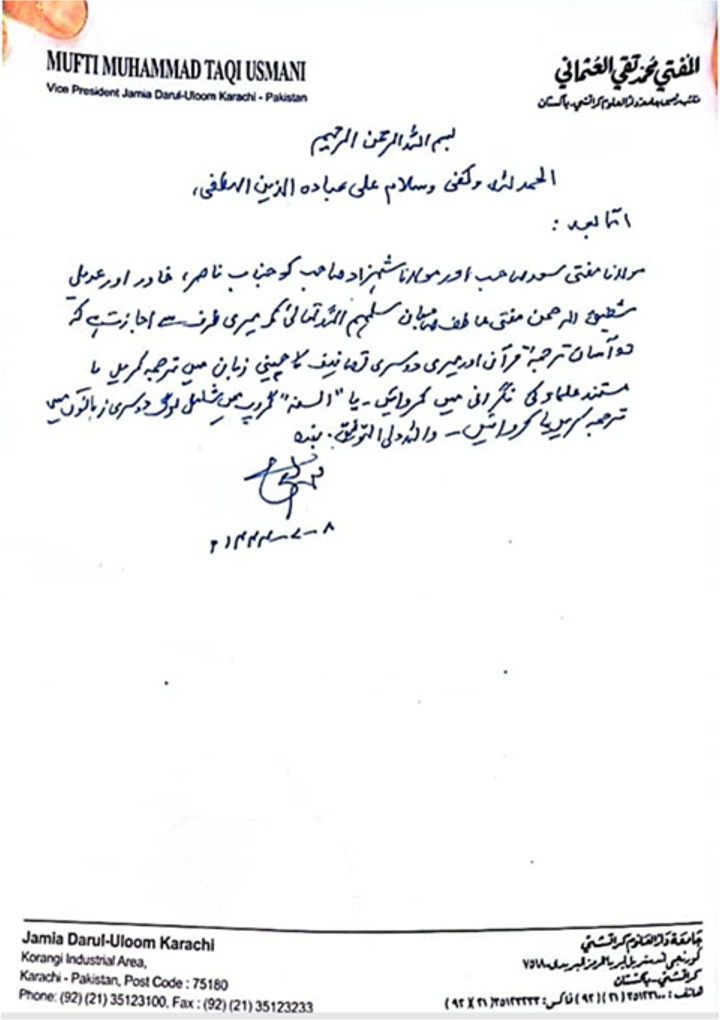 MUFTI MUHAMMAD TAQI USMANI
Vice President Jamia Darul-Uloom Karachi - Pakistan
المفتي محمد تقي العثماني
نائب رئيس جامعة دار العلوم كراتشي - باكستان
بسم اللہ الرحمن الرحیم
الحمد للہ وکفی وسلام علی عبادہ الذین اصطفی،
اما بعد :
مولانا مفتی سعد صاحب اور مولانا شہزاد صاحب کو جناب ناصر، خاور اور عدیل
الرحمن مفتی عاطف صاحبان سلمہم اللہ تعالیٰ کو میری طرف سے اجازت ہے کہ
وہ آسان ترجمۂ قرآن اور میری دوسری تصانیف کا چینی زبان میں ترجمہ کریں یا
مستند علماء کی نگرانی میں کروائیں - یا "السنہ" گروپ میں شامل لوگ دوسری زبانوں میں
ترجمہ کریں یا کروائیں - واللہ ولی التوفیق . بندہ
۸-۷-۱۴۴۴ھ
Jamia Darul-Uloom Karachi
Korangi Industrial Area,
Karachi - Pakistan, Post Code : 75180
Phone: (92) (21) 35123100, Fax : (92) (21) 35123233
جامعة دار العلوم كراتشي
كورنجي اندستريل ايريا الرمز البريدي ٧٥١٨٠
كراتشي - باكستان
هاتف : ٣٥١٢٣١٠٠ (٢١) (٩٢) فاكس: ٣٥١٢٣٢٣٣ (٢١) (٩٢)